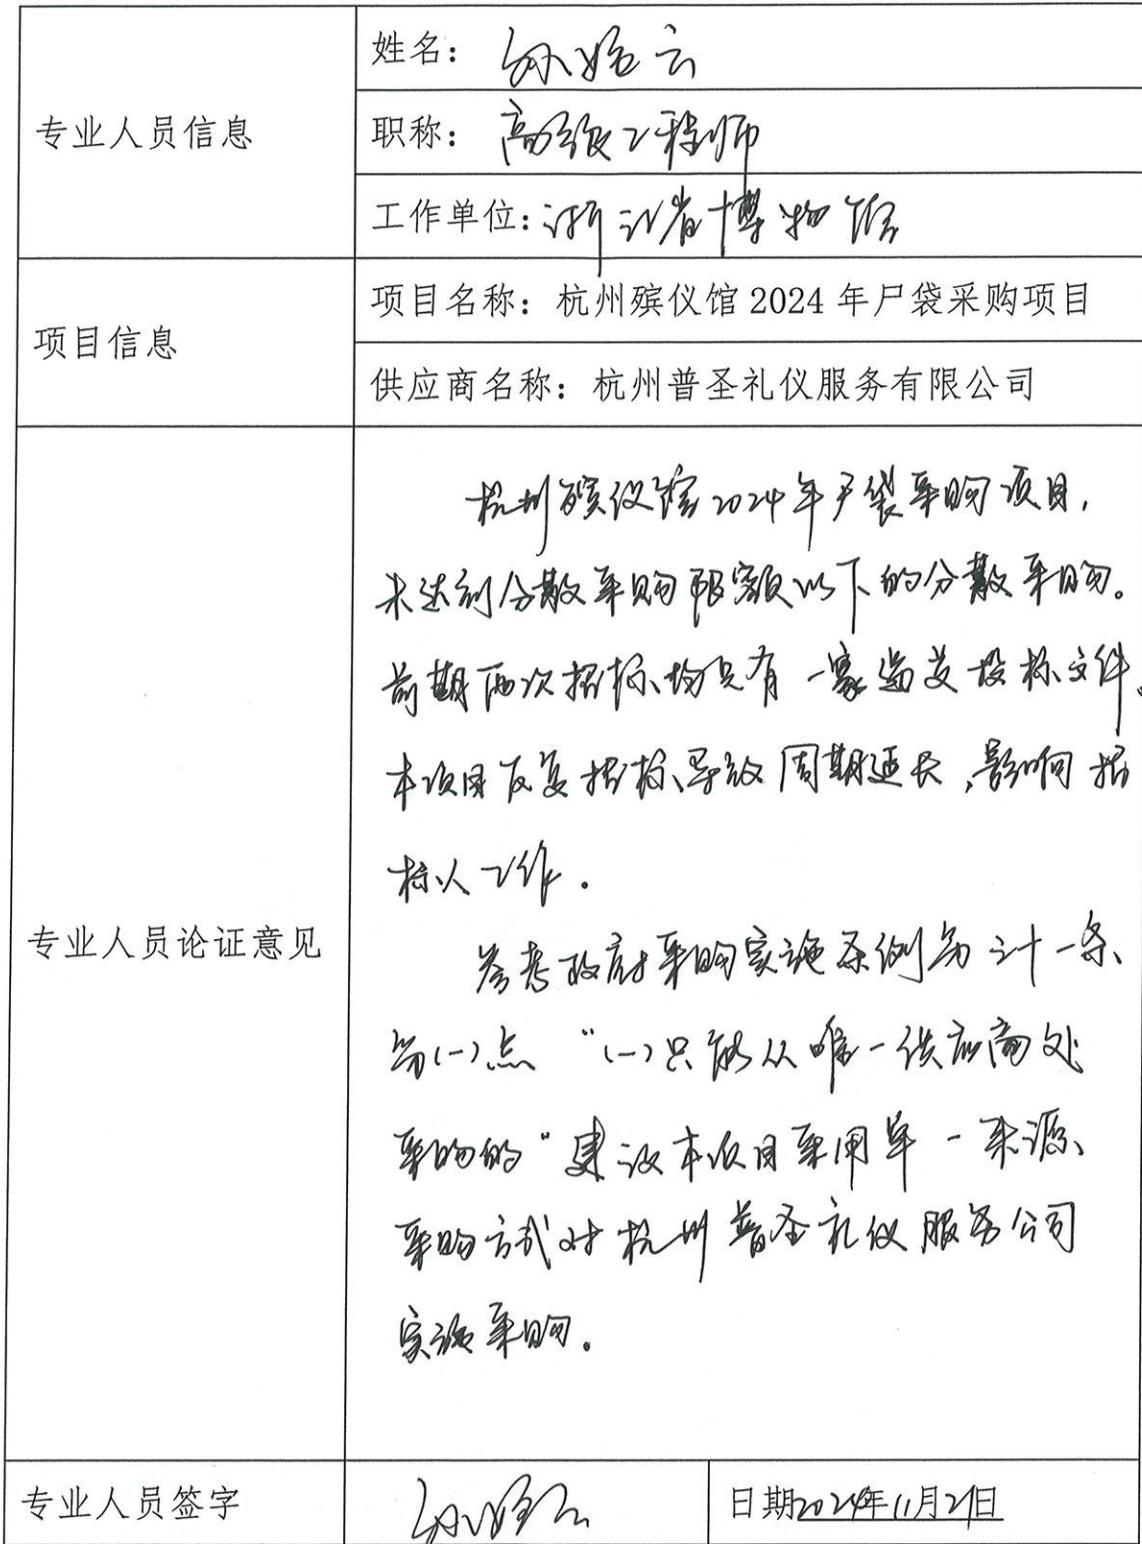 专业人员信息
姓名：孙婉云
职称：高级工程师
工作单位：浙江省博物馆
项目信息
项目名称：杭州殡仪馆 2024 年尸袋采购项目
供应商名称：杭州普圣礼仪服务有限公司
专业人员论证意见
杭州殡仪馆2024年尸袋采购项目，
未达到分散采购限额以下的分散采购。
前期两次招标、均只有一家递交投标文件。
本项目反复招标、导致周期延长，影响招
标人工作。
参考政府采购实施条例第三十一条
第（一）点 “（一）只能从唯一供应商处
采购的” 建议本项目采用单一来源
采购方式对杭州普圣礼仪服务公司
实施采购。
专业人员签字
日期2024年11月21日